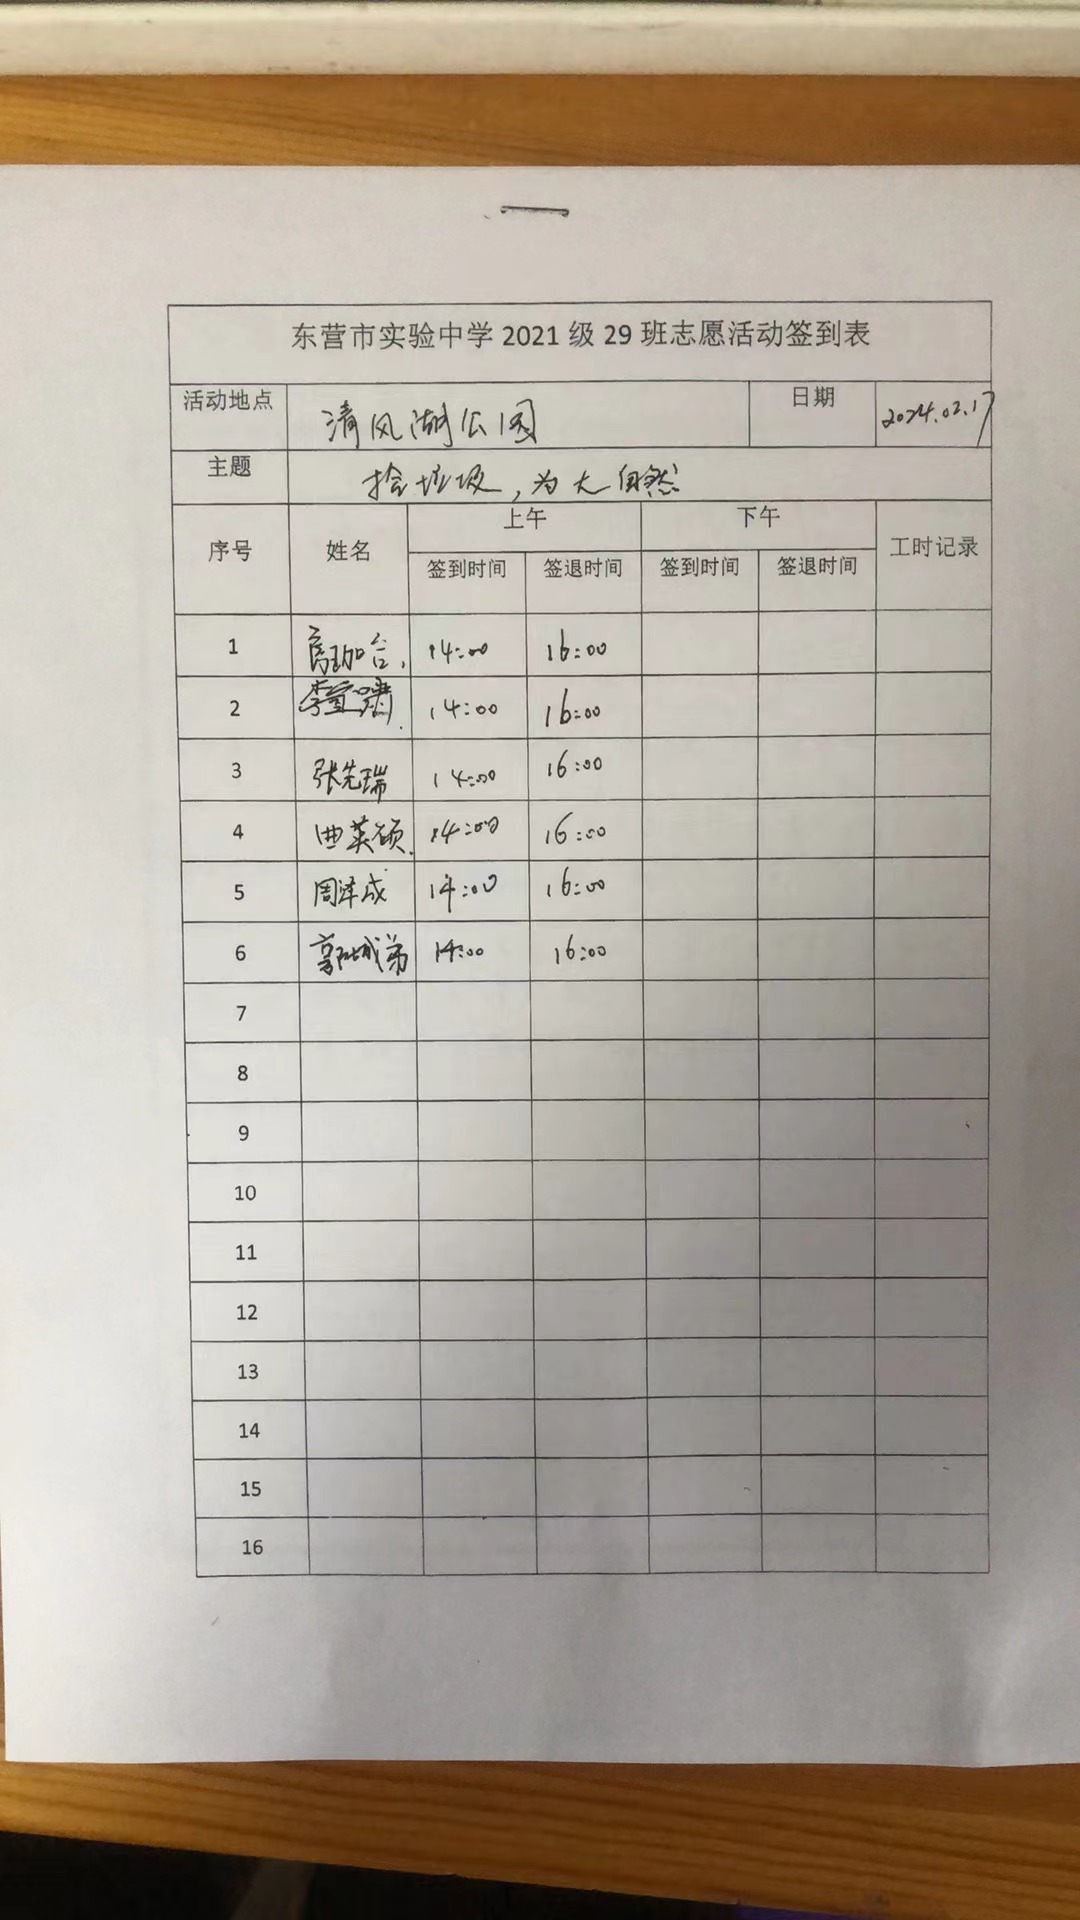 东营市实验中学 2021 级 29 班志愿活动签到表
活动地点 清风湖公园 日期 2024.02.17
主题 捡垃圾，为大自然
序号 姓名 上午 下午 工时记录
签到时间 签退时间 签到时间 签退时间
1 14:00 16:00
2 李 14:00 16:00
3 张先瑞 14:00 16:00
4 曲英硕 14:00 16:00
5 周泽成 14:00 16:00
6 郭 14:00 16:00
7
8
9
10
11
12
13
14
15
16